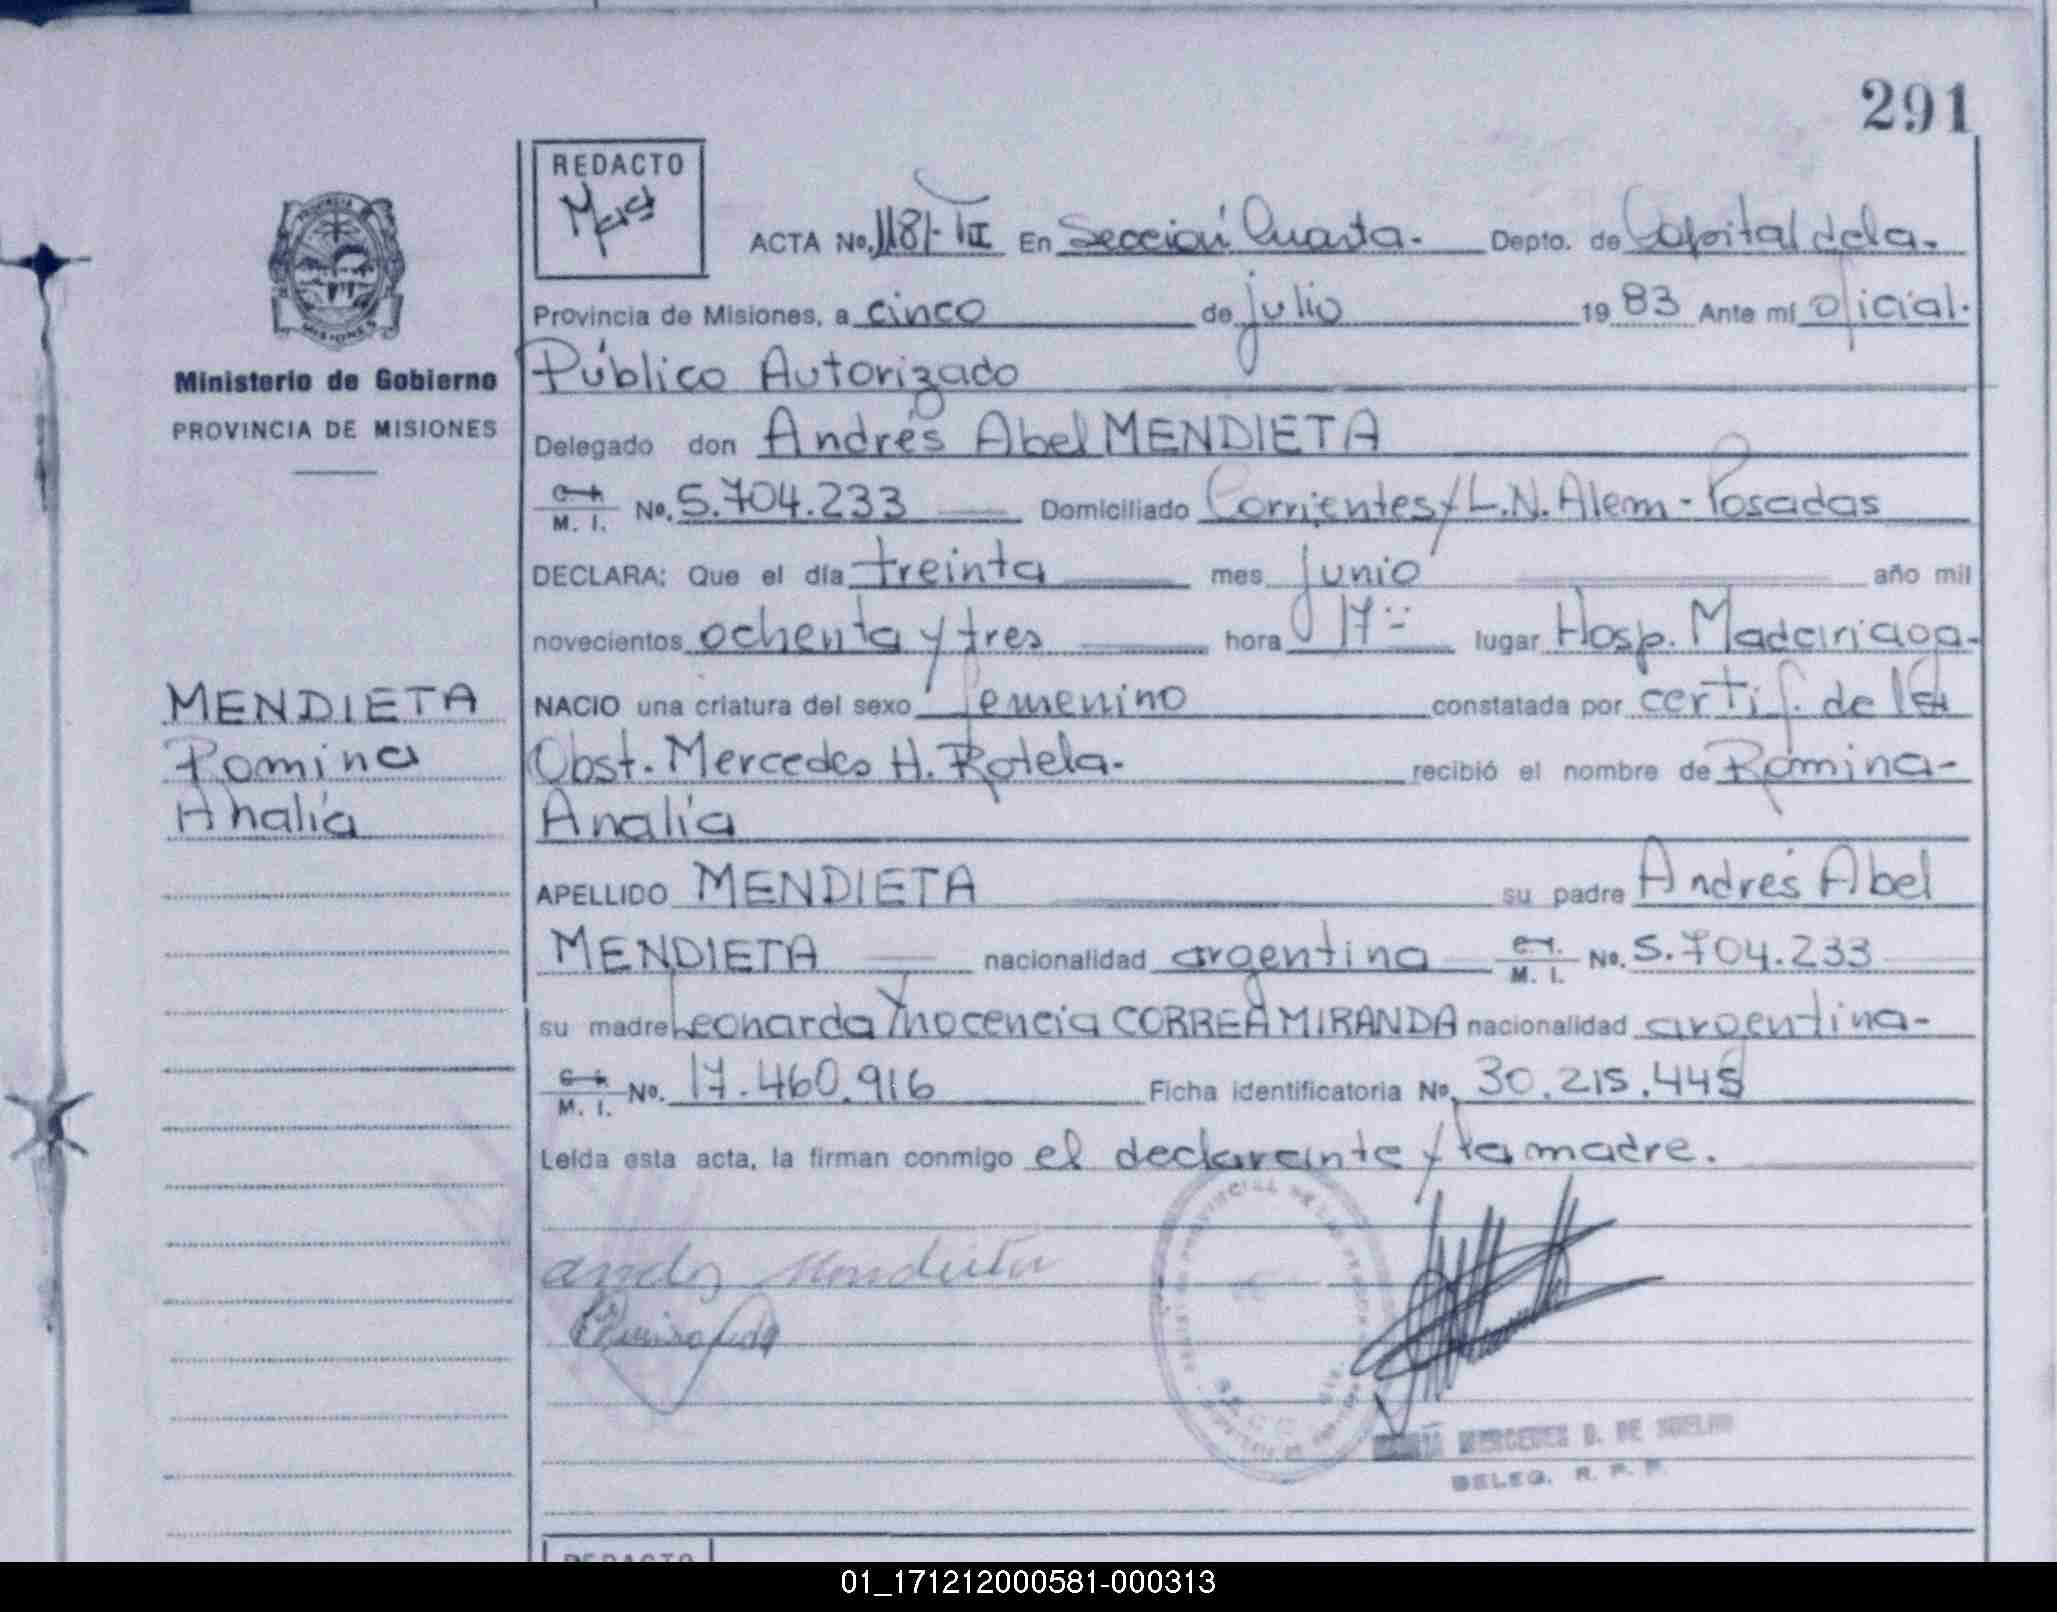 291
REDACTO
ACTA No. 1181-TII En Sección Cuarta. Depto. de Capital de la.
Provincia de Misiones, a cinco de julio 19 83 Ante mí oficial.
Ministerio de Gobierno
PROVINCIA DE MISIONES
Público Autorizado
Delegado don Andrés Abel MENDIETA
M. I. No. 5.704.233 Domiciliado Corrientes y L.N. Alem - Posadas
DECLARA: Que el día treinta mes junio año mil
novecientos ochenta y tres hora 17 lugar Hosp. Madariaga.
MENDIETA
Romina
Analía
NACIO una criatura del sexo femenino constatada por certif. de la
Obst. Mercedes H. Rotela. recibió el nombre de Romina-
Analía
APELLIDO MENDIETA su padre Andrés Abel
MENDIETA nacionalidad argentina M. I. No. 5.704.233
su madre Leonarda Ynocencia CORREA MIRANDA nacionalidad argentina-
M. I. No. 17.460.916 Ficha identificatoria No. 30.215.445
Leída esta acta, la firman conmigo el declarante y la madre.
MERCEDES D. DE
DELEG. R. P. P.
REDACTO
01_171212000581-000313